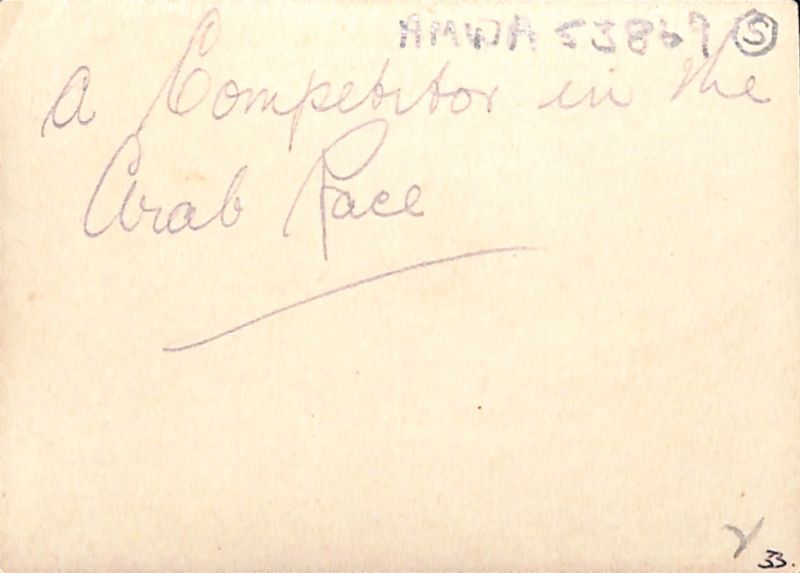 AMWA 53869 Ⓢ
A Competitor in the
Arab Race
33.